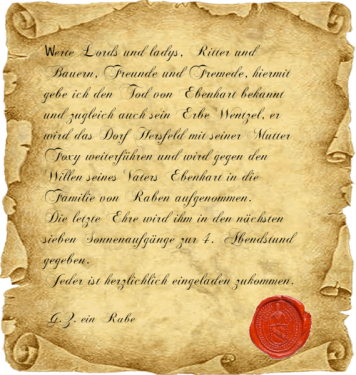 Werte Lords und ladys, Ritter und
Bauern, Freunde und Fremede, hiermit
gebe ich den Tod von Ebenhart bekannt
und zugleich auch sein Erbe Wentzel, er
wird das Dorf Hersfeld mit seiner Mutter
Foxy weiterführen und wird gegen den
Willen seines Vaters Ebenhart in die
Familie von Raben aufgenommen.
Die letzte Ehre wird ihm in den nächsten
sieben Sonnenaufgänge zur 4. Abendstund
gegeben.
Jeder ist herzlichlich eingeladen zukommen.
G. Z. ein Rabe